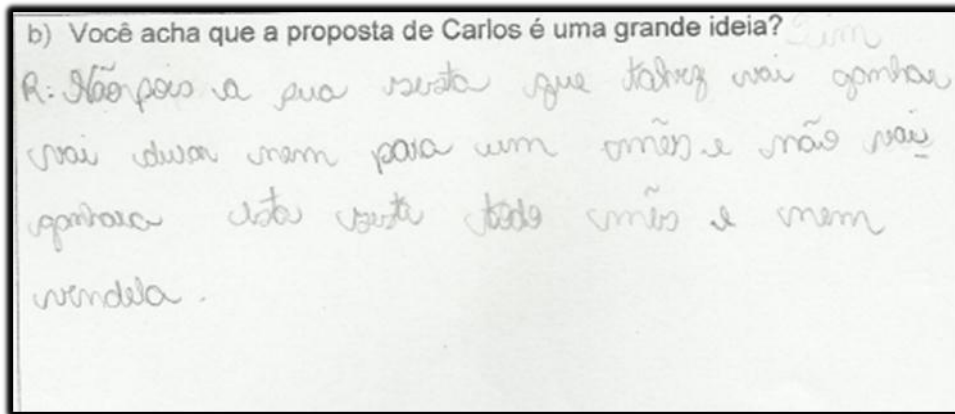 b) Você acha que a proposta de Carlos é uma grande ideia? Sim
R: Não pois a sua sesta que talvez vai ganhar
vai durar nem para um mês e não vai
ganhara esta sesta todo mês e nem
vendela.